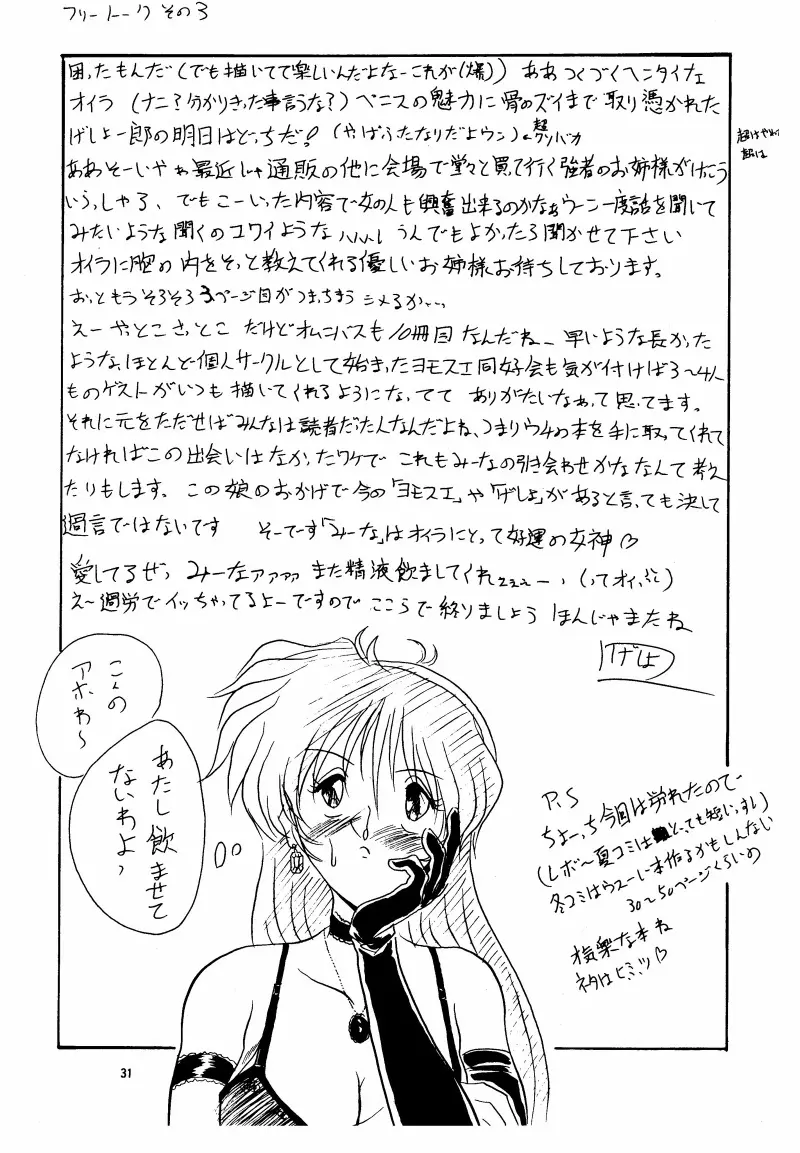 フリートーク その3
困ったもんだ(でも描いてて楽しいんだよなーこれが(爆)) ああつくづくヘンタイナェ
オイラ (ナニ?分かりきった事言うな?) ペニスの魅力に骨のズイまで取り憑かれた
げしょ一郎の明日はどっちだ! (やばふたなりだよウン) 超クソバカ
ああそーいやぁ最近じゃ通販の他に会場で堂々と買って行く強者のお姉様がけっこう
いらっしゃる、でもこーいった内容で女の人も興奮出来るのかなぁウーン一度話を聞いて
みたいような聞くのコワイような、、、、、うんでもよかったら聞かせて下さい
オイラに胸の内をそっと教えてくれる優しいお姉様お待ちしております。
おっともうそろそろ3ページ目がつまっちまう シメるか…
えーやとこさっとこ だけどオムニバスも10冊目なんだねー 早いような長かった
ような、ほとんど個人サークルとして始まったヨモスエ同好会も気が付けば3〜4人
ものゲストがいつも描いてくれるよーになってて ありがたいなぁって思ってます。
それに元をただせばみんなは読者だった人なんだよね、つまりウチの本を手に取ってくれて
なければこの出会いはなかったワケで これもみーなの引き会わせかななんて考え
たりもします。この娘のおかげで今の「ヨモスエ」や「げしょ」があると言っても決して
過言ではないです そーでーす「みーな」はオイラにとって好運の女神♡
愛してるぜっ みーなァァァァ また精液飲ましてくれェェェー、(ってオイ、)
え〜過労でイッちゃってるよーですので ここらで終りましょう ほんじゃまたね
げしょ
こんの
アホわ〜
あたし飲ませて
ないわよっ
P.S
ちょーっち今回は労れたので
(レボ〜夏コミはとっても短いっすし)
冬コミはウスーい本作るかもしんない
30〜50ページくらいの
お気楽な本ね
ネタはヒミツ♡
31